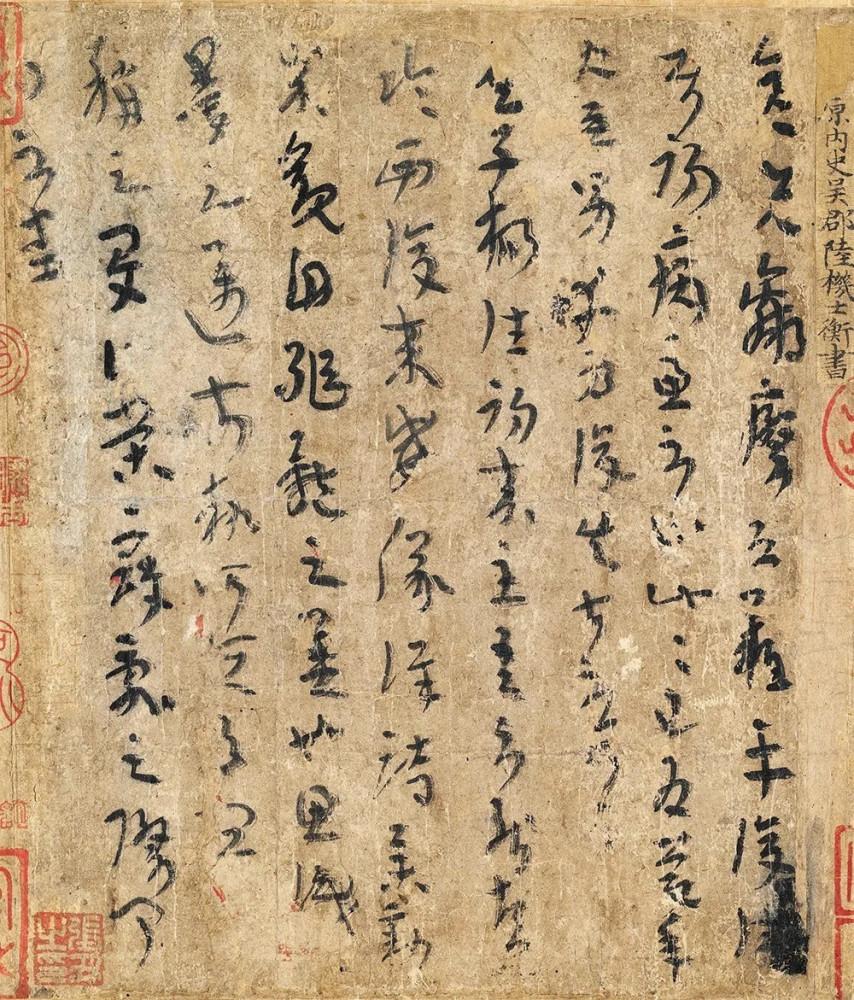 原内史吳郡陸機士衡書
彦先羸瘵恐難平復往
屬初病慮不止此此已為慶承
使唯男幸為復失前憂耳
吳子楊往初來主吾不能盡
臨西復來威儀詳跱舉動
成觀自軀體之美也思識
量之邁前執所恒有宜
稱之夏伯榮寇亂之際聞
問不悉